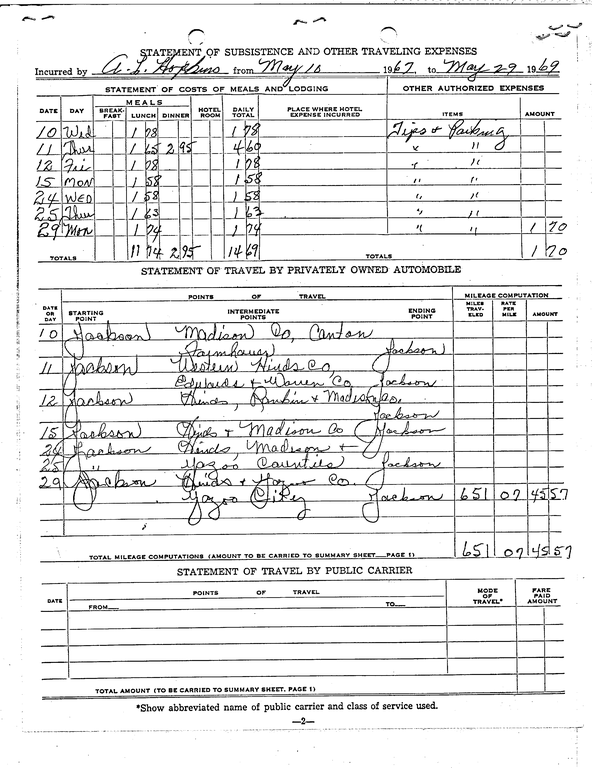 STATEMENT OF SUBSISTENCE AND OTHER TRAVELING EXPENSES
Incurred by A. L. Hopkins from May 10 1967, to May 29 1969
STATEMENT OF COSTS OF MEALS AND LODGING OTHER AUTHORIZED EXPENSES
DATE DAY MEALS BREAK-FAST LUNCH DINNER HOTEL ROOM DAILY TOTAL PLACE WHERE HOTEL EXPENSE INCURRED ITEMS AMOUNT
10 Wed 1 78 1 78 Tips & Parking
11 Thur 1 65 2 95 4 60 " "
12 Fri 1 78 1 78 " "
15 MON 1 58 1 58 " "
24 WED 1 58 1 58 " "
25 Thu 1 63 1 63 " "
29 Mon 1 74 1 74 " " 1 70
TOTALS 11 74 2 95 14 69 TOTALS 1 70
STATEMENT OF TRAVEL BY PRIVATELY OWNED AUTOMOBILE
DATE OR DAY POINTS OF TRAVEL MILEAGE COMPUTATION
STARTING POINT INTERMEDIATE POINTS ENDING POINT MILES TRAV-ELED RATE PER MILE AMOUNT
10 Jackson Madison Co, Canton
Farmhaven Jackson
11 Jackson Western Hinds Co,
Edwards & Warren Co Jackson
12 Jackson Hinds, Rankin & Madison Co.
Jackson
15 Jackson Hinds & Madison Co Jackson
24 Jackson Hinds Madison &
25 " Yazoo Counties Jackson
29 Jackson Hinds & Yazoo Co.
Yazoo City Jackson 651 07 45 57
TOTAL MILEAGE COMPUTATIONS (AMOUNT TO BE CARRIED TO SUMMARY SHEET PAGE 1) 651 07 45 57
STATEMENT OF TRAVEL BY PUBLIC CARRIER
DATE POINTS OF TRAVEL MODE OF TRAVEL* FARE PAID AMOUNT
FROM TO
TOTAL AMOUNT (TO BE CARRIED TO SUMMARY SHEET, PAGE 1)
*Show abbreviated name of public carrier and class of service used.
—2—